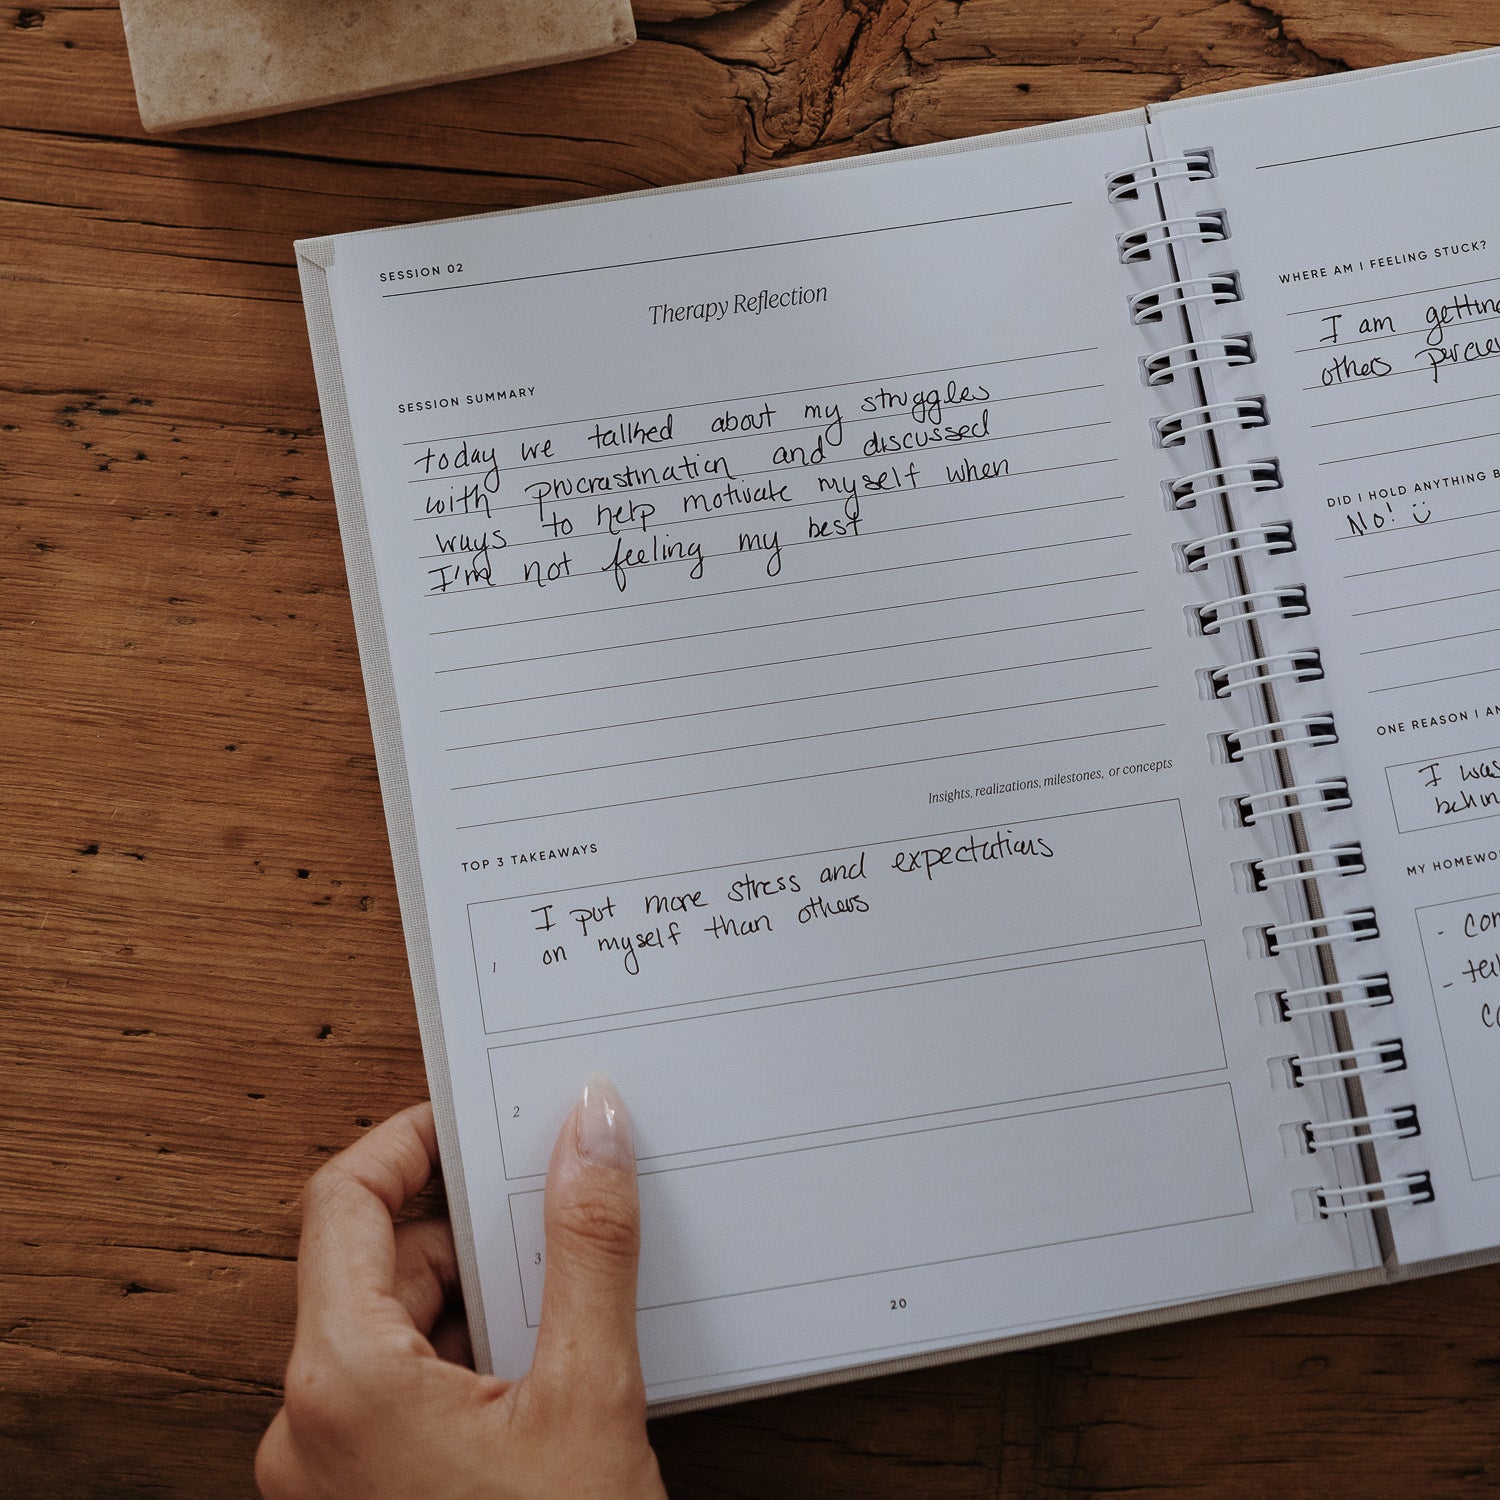 SESSION 02
Therapy Reflection
SESSION SUMMARY
today we talked about my struggles
with procrastination and discussed
ways to help motivate myself when
I'm not feeling my best
Insights, realizations, milestones, or concepts
TOP 3 TAKEAWAYS
1
I put more stress and expectations
on myself than others
2
3
20
WHERE AM I FEELING STUCK?
I am getting
others
DID I HOLD ANYTHING B
No! ☺
ONE REASON I AM
I was
MY HOMEWO